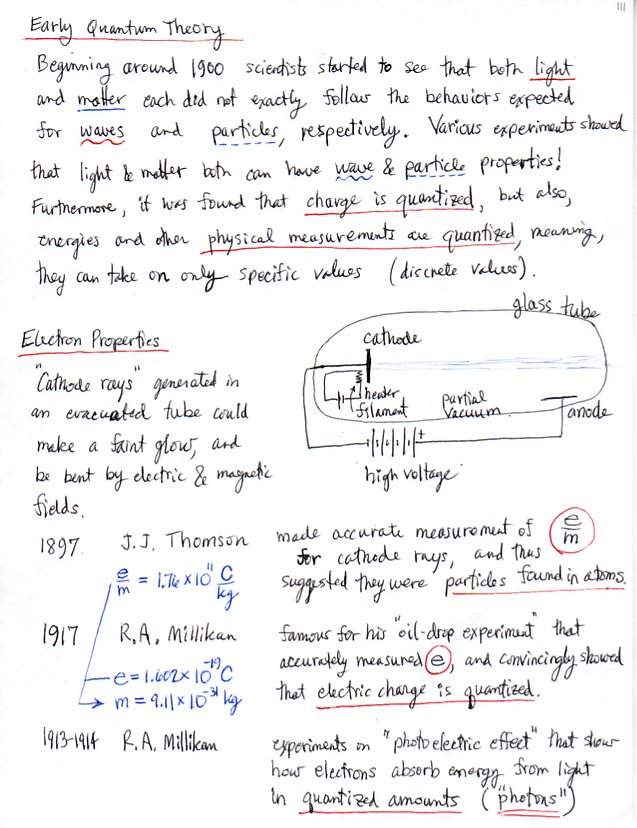 Early Quantum Theory
Beginning around 1900 scientists started to see that both light
and matter each did not exactly follow the behaviors expected
for waves and particles, respectively. Various experiments showed
that light & matter both can have wave & particle properties!
Furthermore, it was found that charge is quantized, but also,
energies and other physical measurements are quantized, meaning,
they can take on only specific values (discrete values).
Electron Properties
"Cathode rays" generated in
an evacuated tube could
make a faint glow, and
be bent by electric & magnetic
fields.
glass tube
cathode
heater
filament
partial
vacuum
anode
+
high voltage
1897 J.J. Thomson made accurate measurement of e/m
for cathode rays, and thus
suggested they were particles found in atoms.
e/m = 1.76×10¹¹ C/kg
1917 R.A. Millikan famous for his "oil-drop experiment" that
accurately measured e, and convincingly showed
that electric charge is quantized.
e = 1.602×10⁻¹⁹ C
m = 9.11×10⁻³¹ kg
1913-1914 R.A. Millikan experiments on "photoelectric effect" that show
how electrons absorb energy from light
in quantized amounts ("photons")